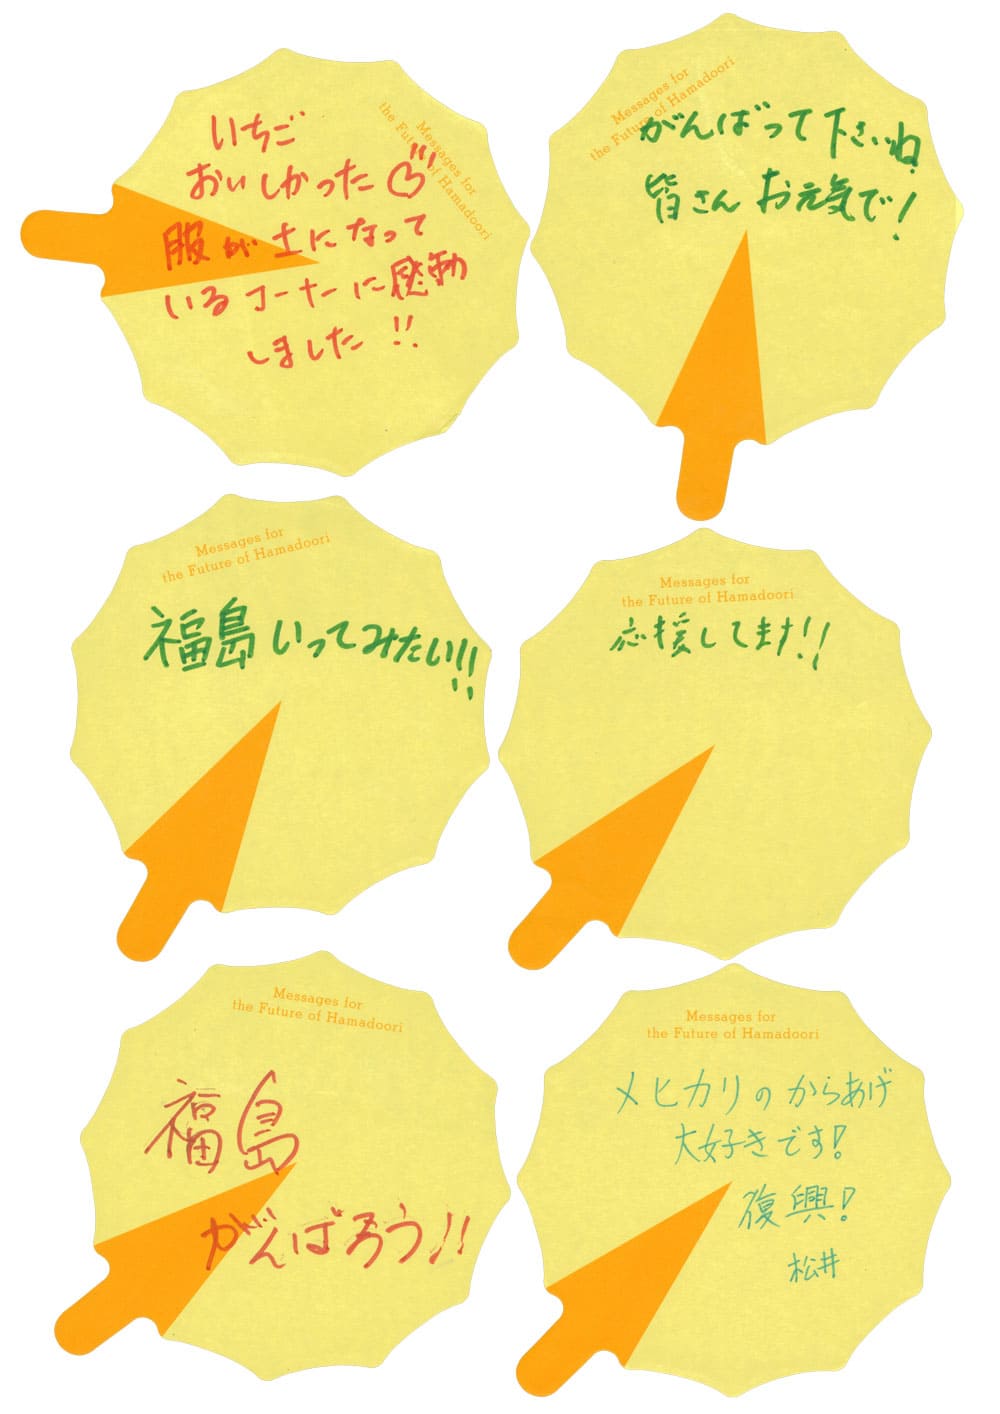 Messages for
the Future of Hamadoori
いちご
おいしかった♡
服が土になって
いるコーナーに感動
しました!!
Messages for
the Future of Hamadoori
がんばって下さいね!
皆さんお元気で!
Messages for
the Future of Hamadoori
福島いってみたい!!
Messages for
the Future of Hamadoori
応援してます!!
Messages for
the Future of Hamadoori
福島
がんばろう!!
Messages for
the Future of Hamadoori
メヒカリのからあげ
大好きです!
復興!
松井